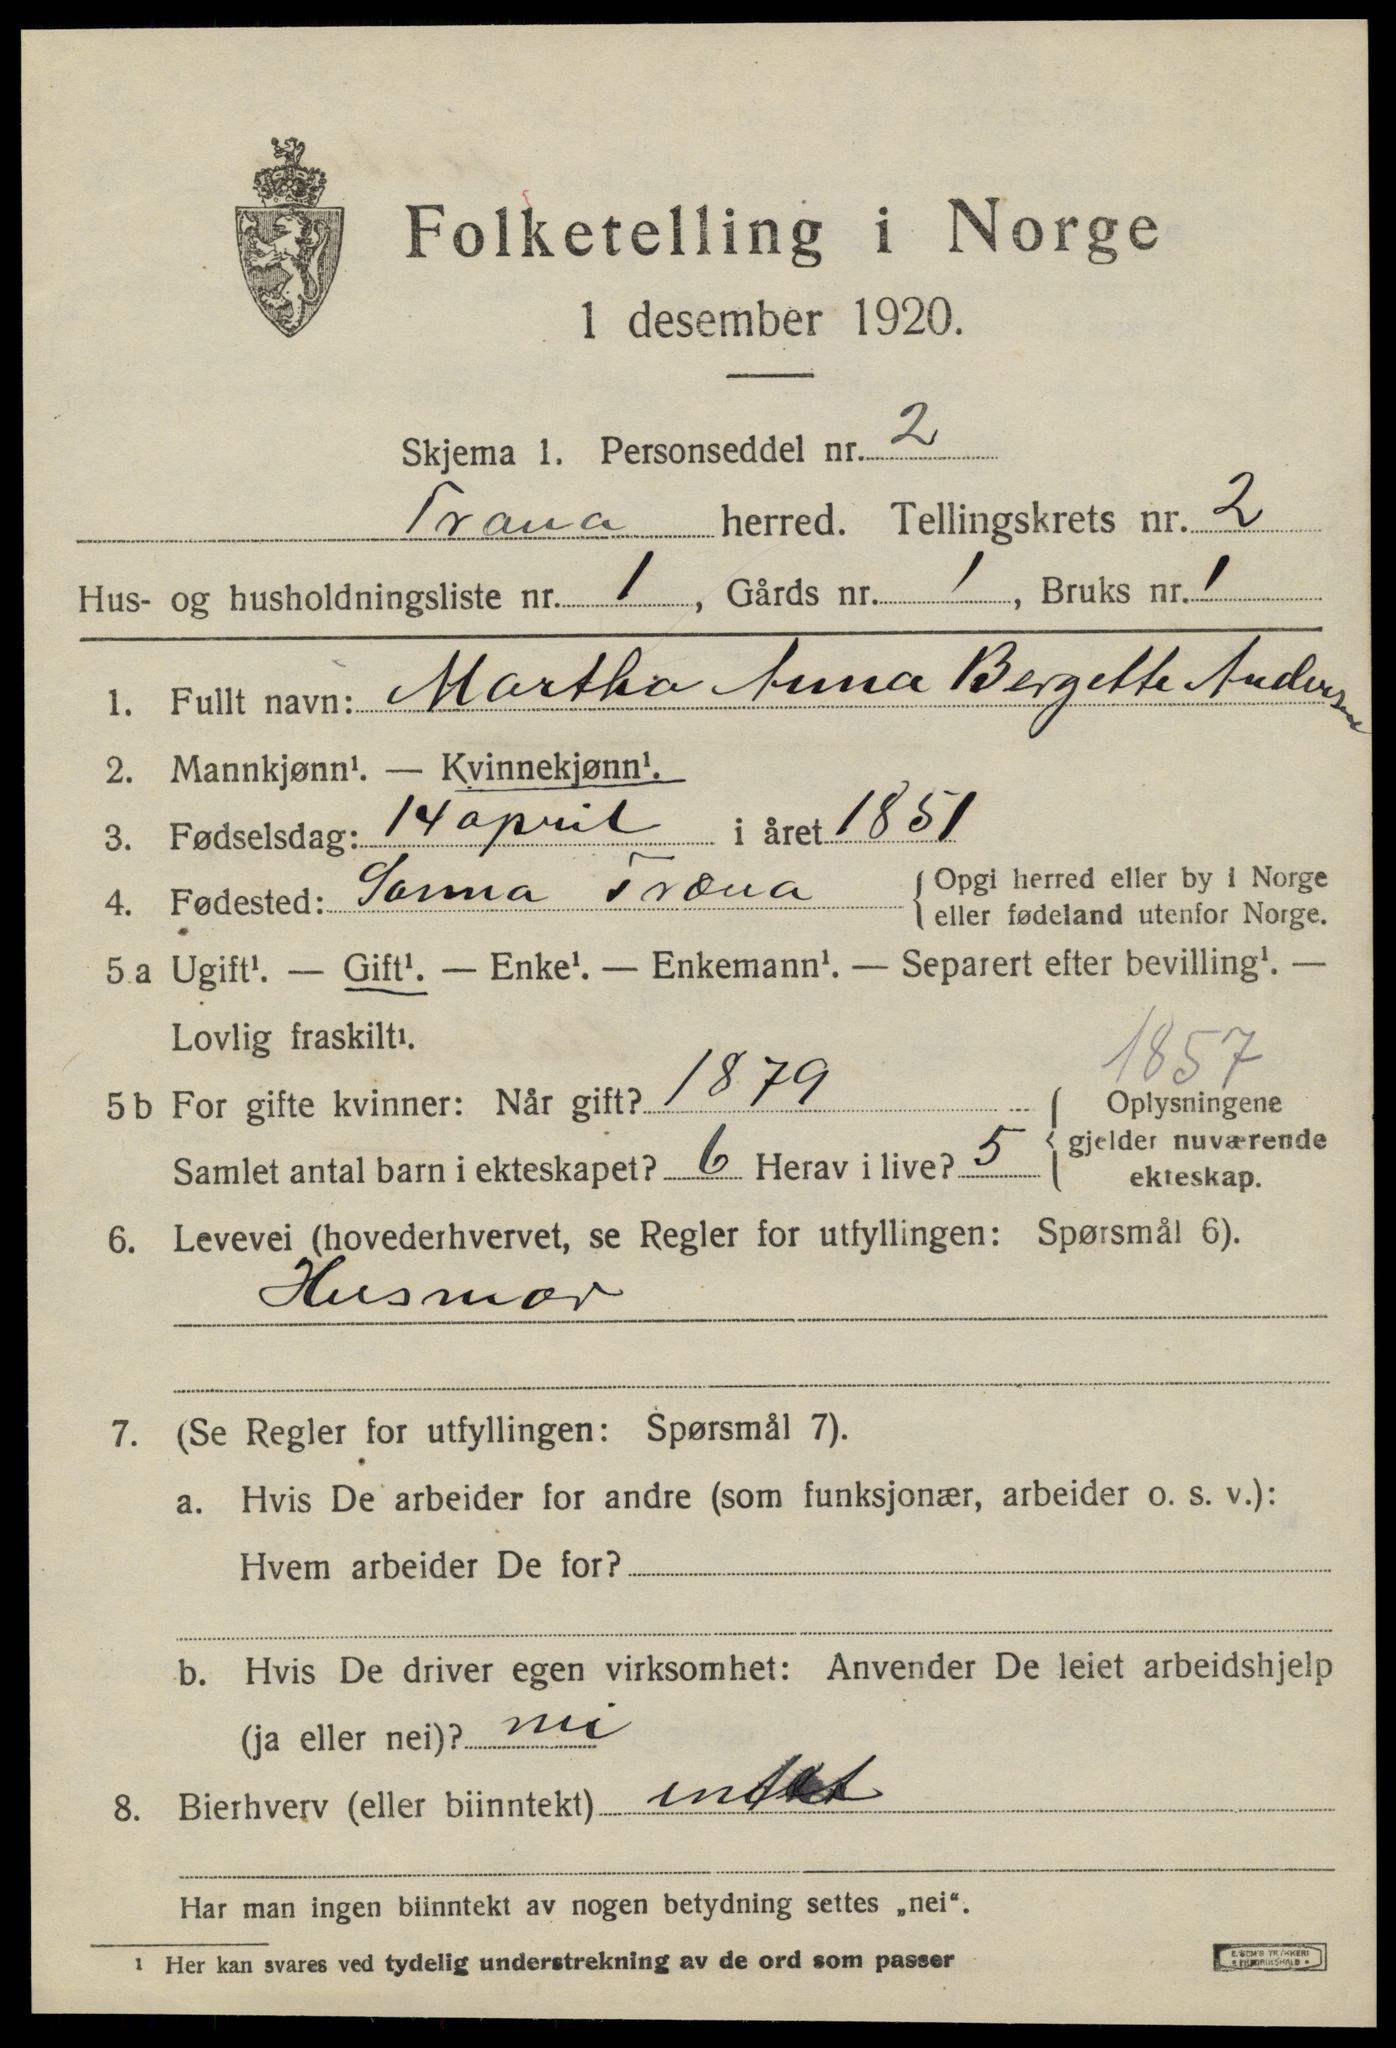 Folketelling i Norge
1 desember 1920.
Skjema 1. Personseddel nr. 2
Træna herred. Tellingskrets nr. 2
Hus- og husholdningsliste nr. 1, Gårds nr. 1, Bruks nr. 1
1. Fullt navn: Martha Anna Bergette Andersen
2. Mannkjønn¹. — Kvinnekjønn¹.
3. Fødselsdag: 14 april i året 1851
4. Fødested: Sanna Træna {Opgi herred eller by i Norge
eller fødeland utenfor Norge.
5 a Ugift¹. — Gift¹. — Enke¹. — Enkemann¹. — Separert efter bevilling¹. —
Lovlig fraskilt¹.
1857
5 b For gifte kvinner: Når gift? 1879 Oplysningene
gjelder nuværende
Samlet antal barn i ekteskapet? 6 Herav i live? 5 ekteskap.
6. Levevei (hovederhvervet, se Regler for utfyllingen: Spørsmål 6).
Husmor
7. (Se Regler for utfyllingen: Spørsmål 7).
a. Hvis De arbeider for andre (som funksjonær, arbeider o. s. v.):
Hvem arbeider De for?
b. Hvis De driver egen virksomhet: Anvender De leiet arbeidshjelp
(ja eller nei)? nei
8. Bierhverv (eller biinntekt) intet
Har man ingen biinntekt av nogen betydning settes „nei“.
¹ Her kan svares ved tydelig understrekning av de ord som passer
E. SEM'S TRYKKERI
FREDRIKSHALD